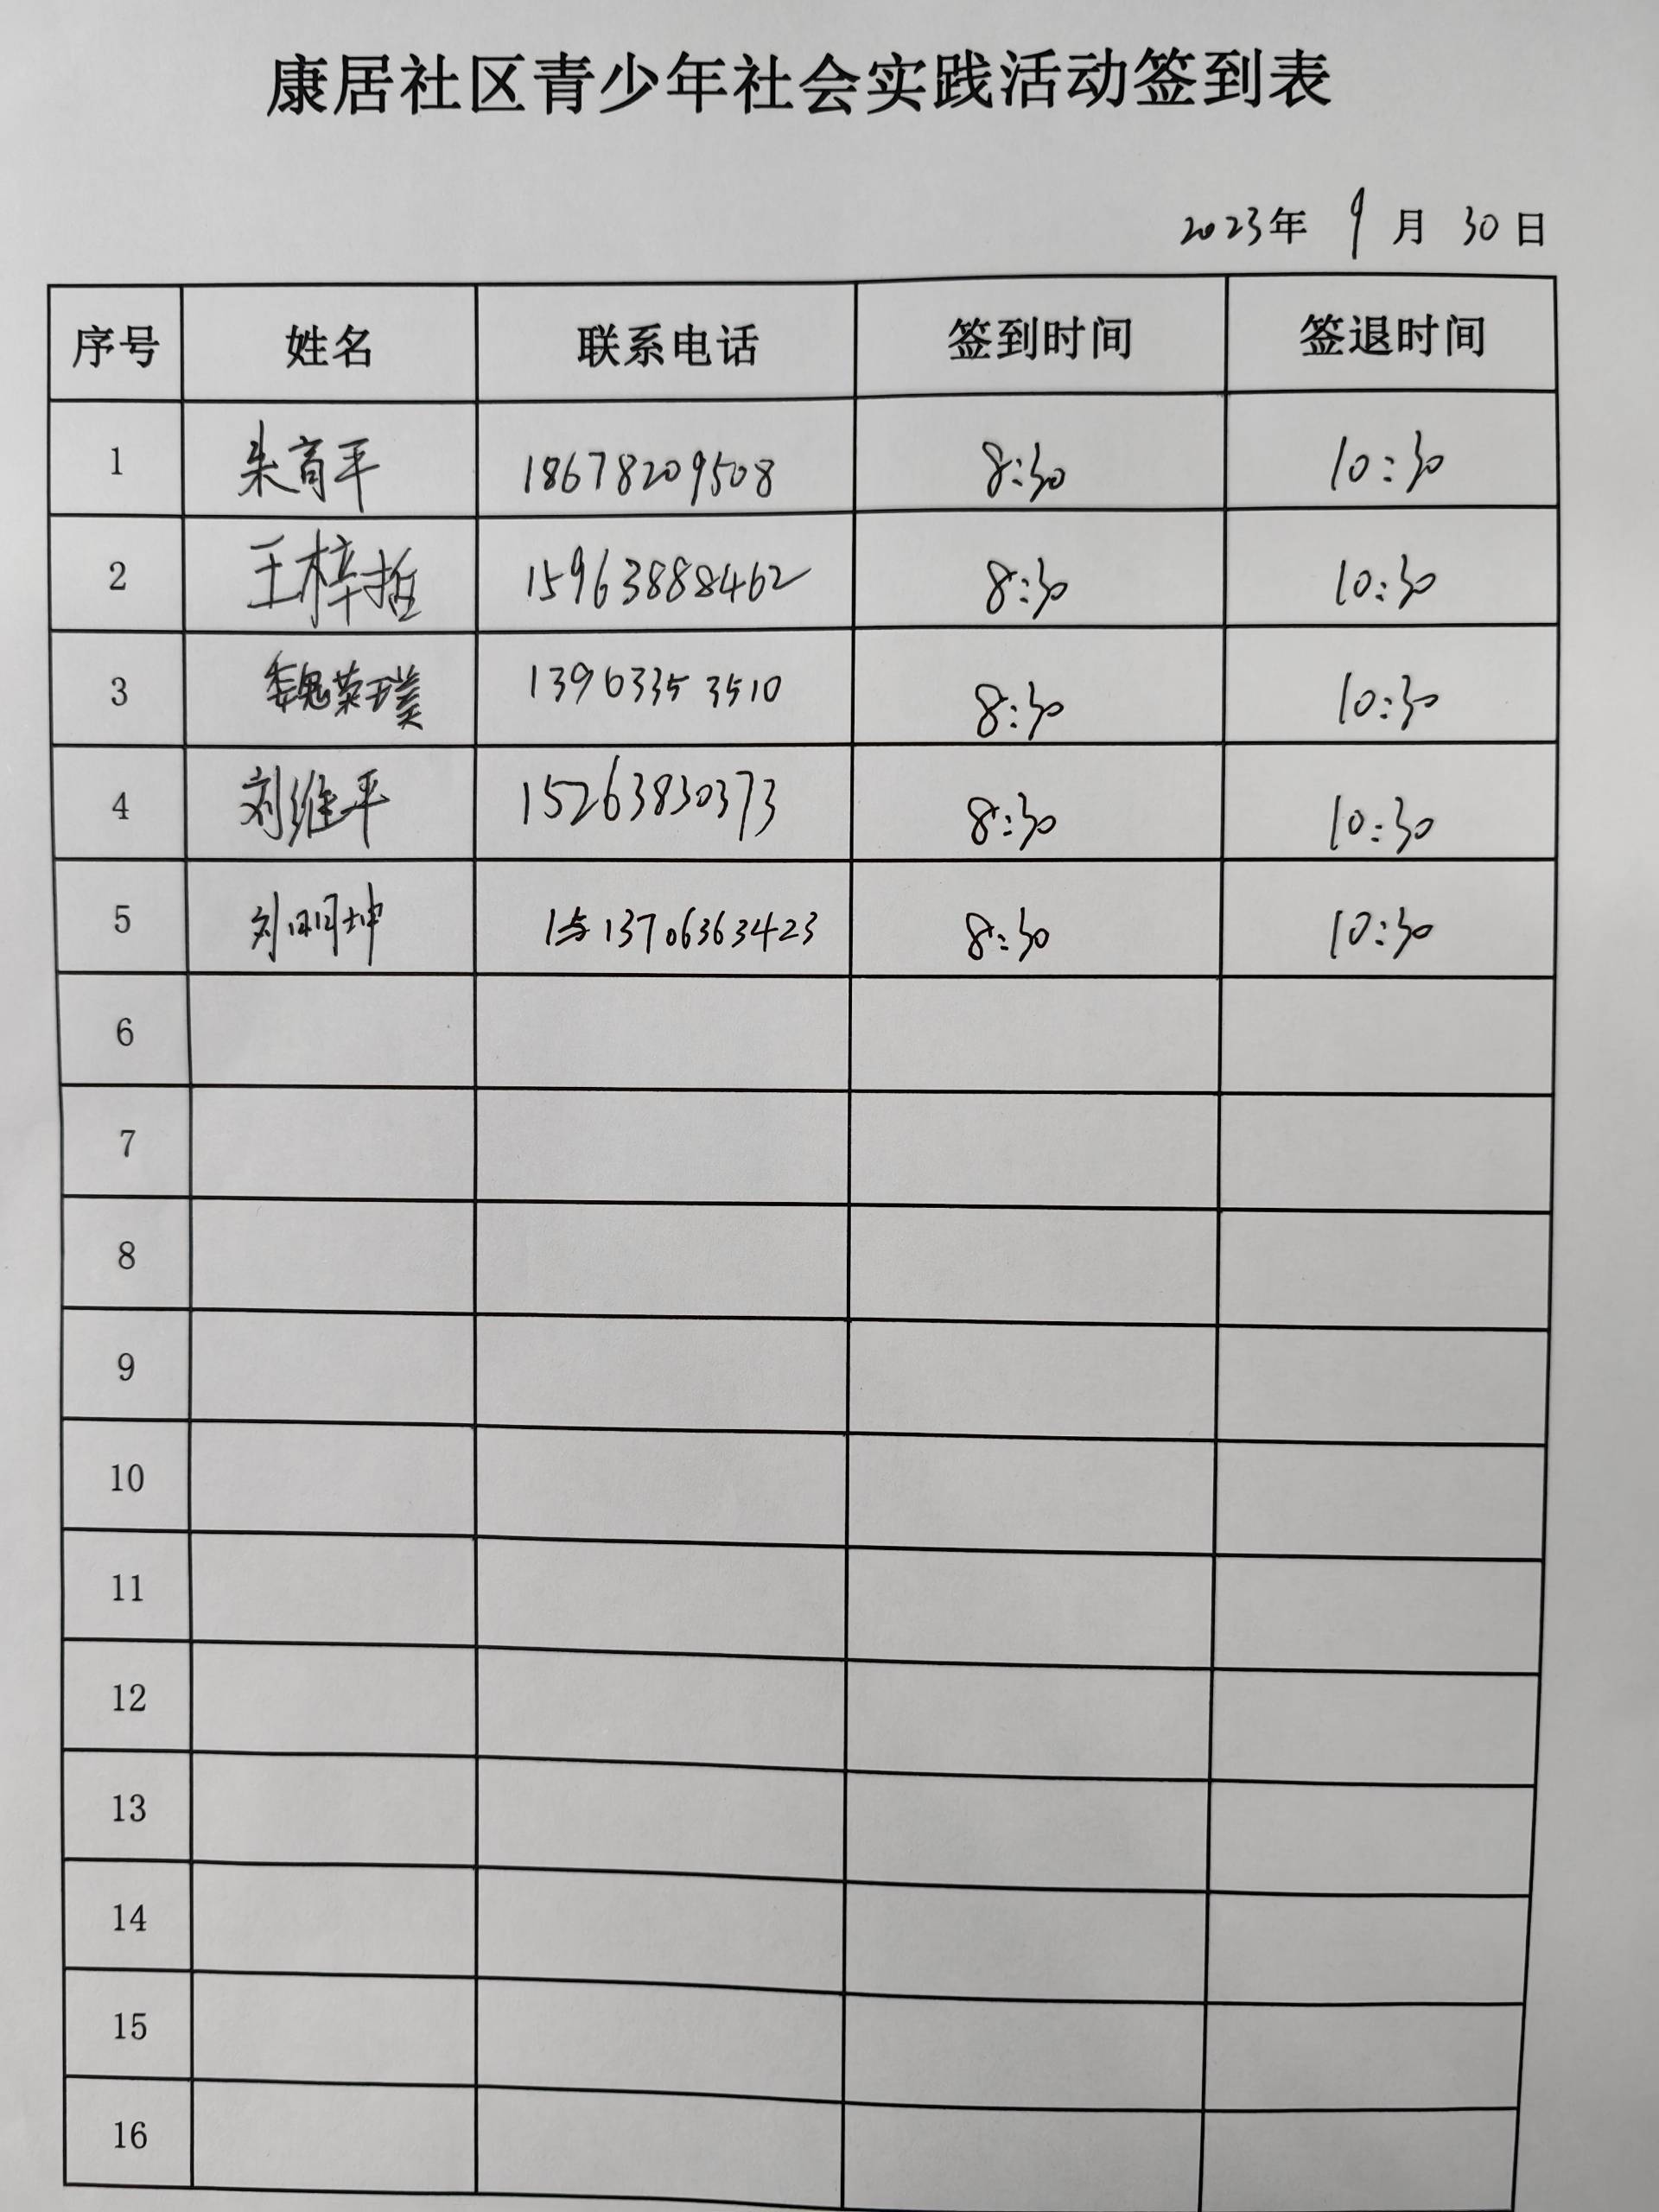 康居社区青少年社会实践活动签到表
2023年 9月 30日
序号 姓名 联系电话 签到时间 签退时间
1 朱育平 18678209508 8:30 10:30
2 王梓哲 15963888462 8:30 10:30
3 魏荣璞 13963353510 8:30 10:30
4 刘维平 15263830373 8:30 10:30
5 刘明坤 13706363423 8:30 10:30
6
7
8
9
10
11
12
13
14
15
16